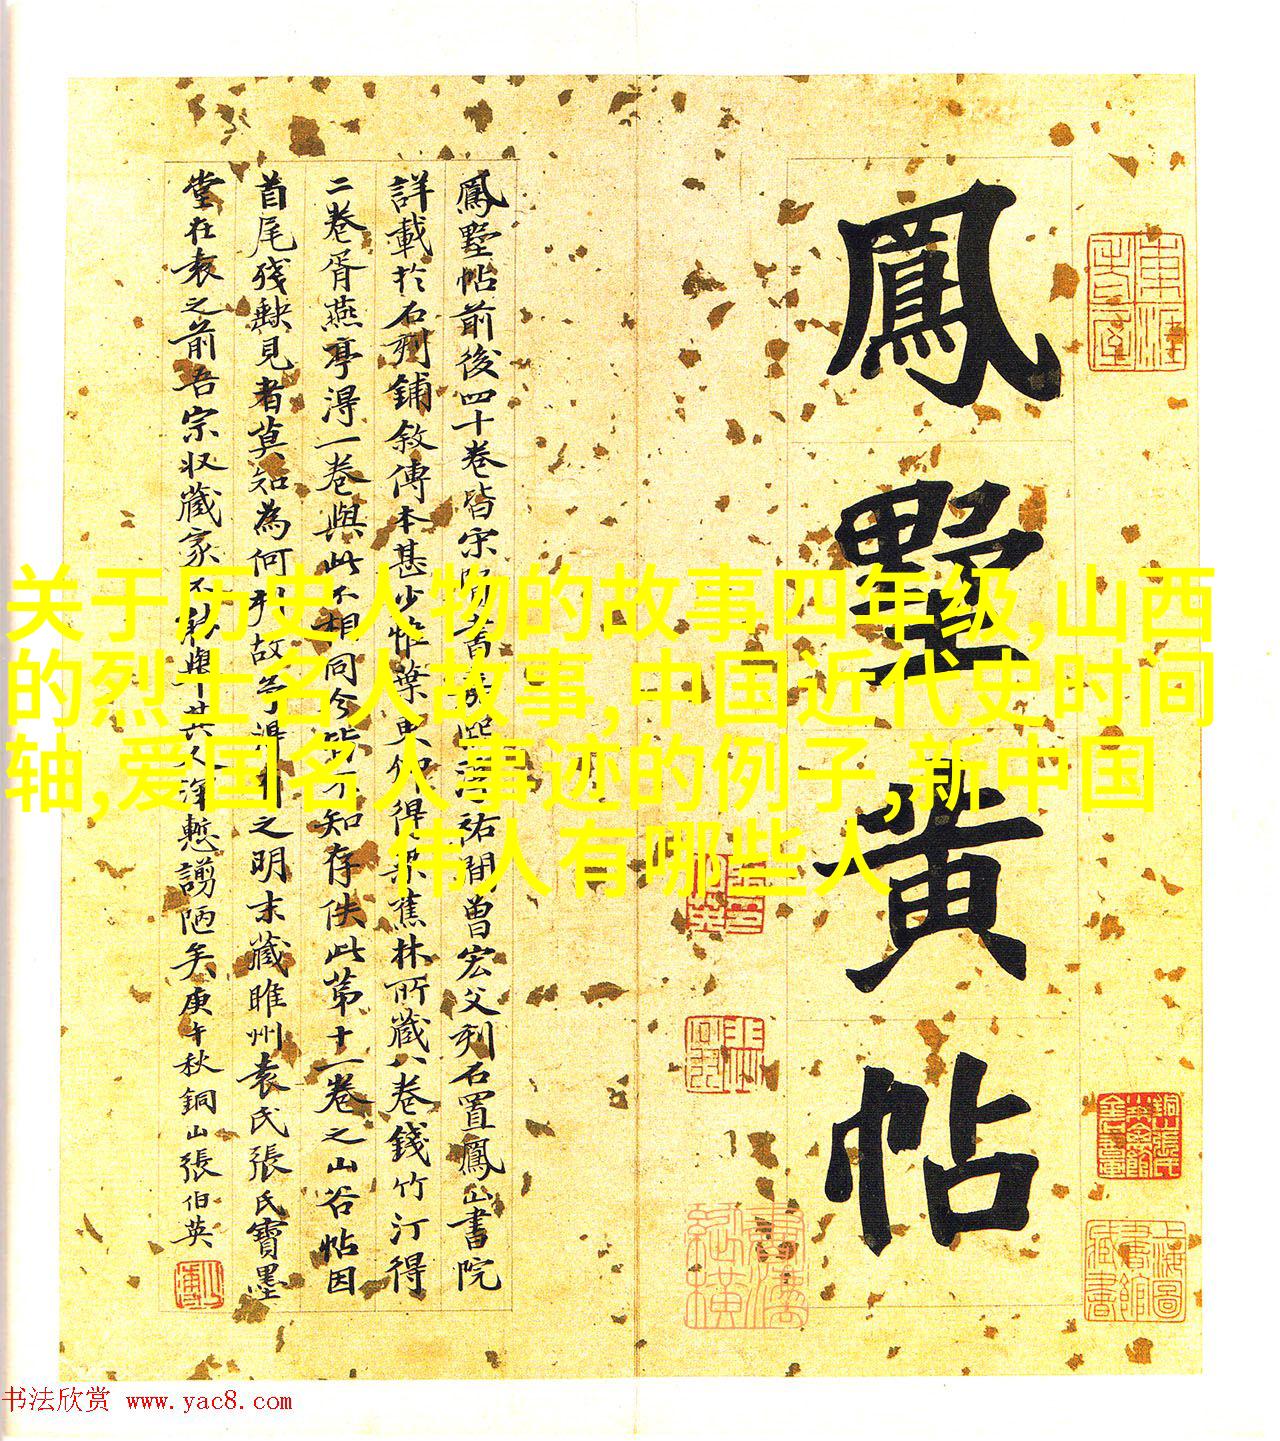 鳳墅黄帖
鳳墅帖前後四十卷皆宋
祐間曾宏父刋石置鳳山書院
詳載於石刻鋪敘傳本甚少惟葉
得
蕉林所藏八卷錢竹汀得
二卷胥燕亭得一卷與此不相同今皆不知存佚此第十一卷之山谷帖因
首尾殘缺見者莫知為何刋故
之明末藏睢州袁氏張氏寶墨
堂在袁之前吾宗收藏家不
謭陋矣庚午秋銅山張伯英
上海圖書館藏書
关于历史人物的故事四年级,山西
的烈士名人故事,中国近代史时间
轴,爱国名人事迹的例子,新中国
伟人有哪些人
书法欣赏 www.yac8.com